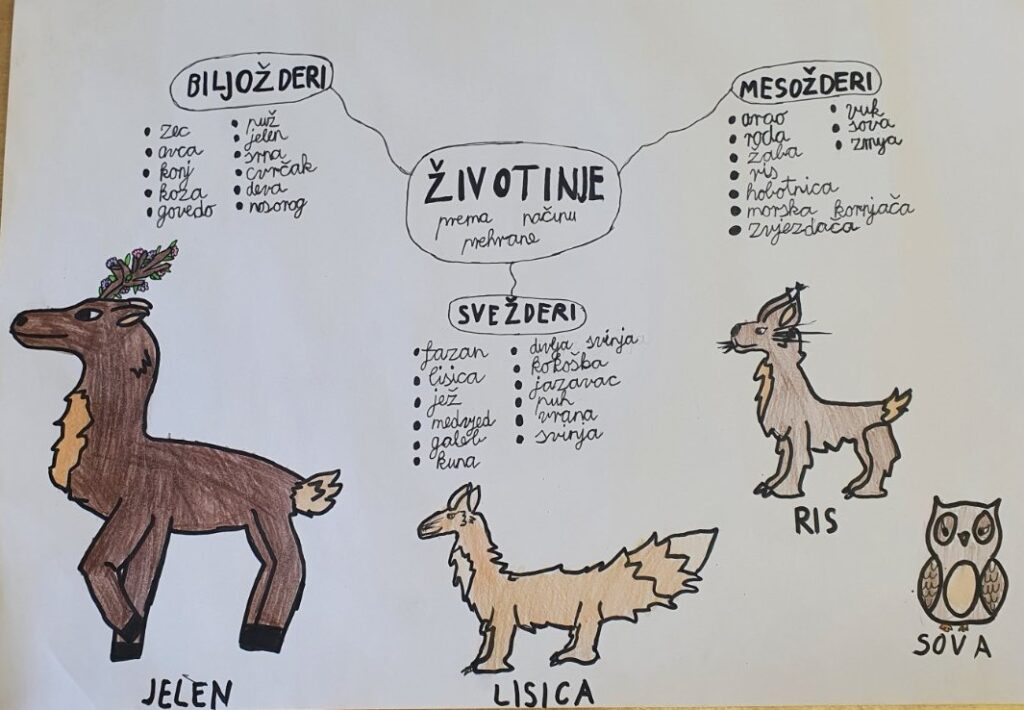 BILJOŽDERI
zec
ovca
konj
koza
govedo
puž
jelen
srna
cvrčak
deva
nosorog
ŽIVOTINJE
prema načinu
prehrane
MESOŽDERI
orao
roda
žaba
ris
hobotnica
morska kornjača
zvjezdača
vuk
sova
zmija
SVEŽDERI
fazan
lisica
jež
medvjed
galeb
kuna
divlja svinja
kokoška
jazavac
puh
vrana
svinja
JELEN
LISICA
RIS
SOVA